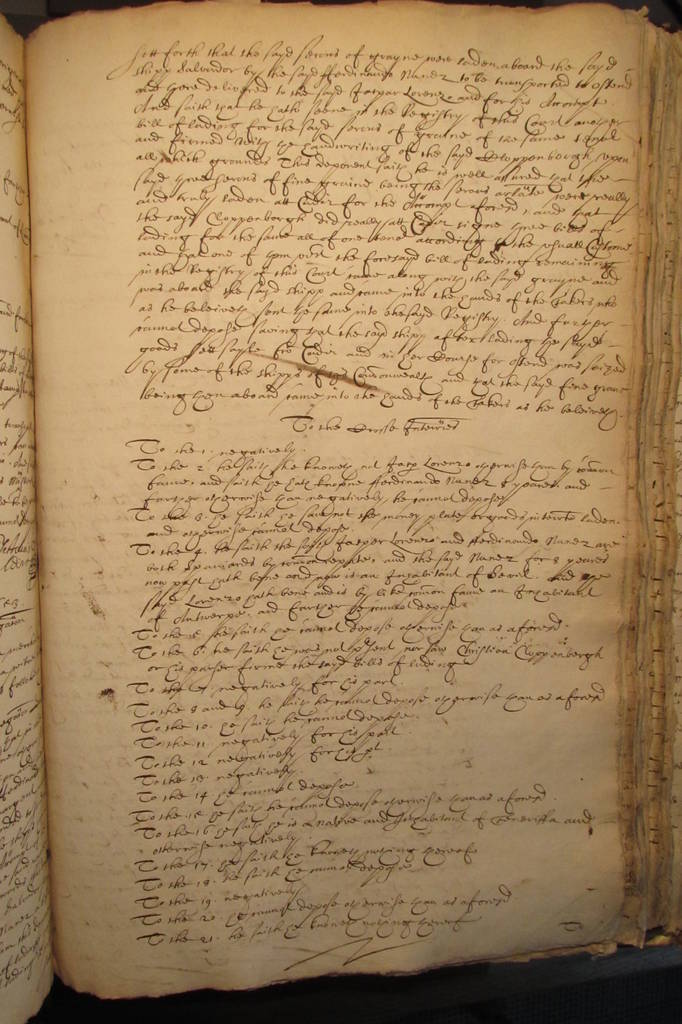 sett forth that the sayd serons of grayne were laden aboard the sayd
shipp Salvador by the sayd Fferdinando Nunez to be transported to Ostend
and there delivered to the sayd Jaspar Lorenzo and for his Accompt
And saith that he hath seene in the Registry of this Court another
bill of lading for the sayd serons of graine of the same tenor
and firmed with the handwriting of the sayd Cloppenborgh upon
all which grounds This deponent saith he is well assured that the
sayd three serons of fine graine being the serons arlate were really
and truly laden att Cadiz for the Accompt aforesd, and that
the sayd Cloppenborgh did really att Cadiz signe three bills of
lading for the same all of one tenor according to the usuall Custome
and that one of them with the foresayd bill of lading remaining
in the Registry of this Court came along with the sayd grayne and
was aboard the sayd shipp and came into the hands of the Takers who
as he beleiveth sent the same into the sayd Registry. And further
cannot depose saving that the sayd shipp after lading the sayd
goods sett sayle fro Cadiz and in her Course for Ostend was seized
by some of the shipps of this Commonwealth and that the sayd fine grane
being then aboard came into the hands of the Takers as he beleiveth.
To the Crosse Interries
To the 1. negatively.
To the 2. he saith he knoweth not Jasp Lorenzo otherwise than by common
fame, and saith he hath knowne Fferdinando Nunez 8 yeares and
further otherwise than negatively he cannot depose
To the 3. he saith he saw not the money plate or goods interrte laden
and otherwise cannot depose.
To the 4. he saith the sayd Jasper Lorenzo and Fferdinando Nunez are
both Spaniards by common repute, and the sayd Nunez for 8 yeares
now past hath bene and now is an Inhabitant of Sevill and the
sayd Lorenzo hath bene and is by like common fame an Inhabitant
of Antwerpe, and further he cannot depose
To the 5. he saith he cannot depose otherwise than as aforesd.
To the 6. he saith he was not present nor saw Christian Cloppenbergh
or his purser firme the sayd bills of lading
To the 7. negatively for his part.
To the 8 and 9. he saith he cannot depose otherwise than as aforesd
To the 10. he saith he cannot depose.
To the 11. negatively for his part.
To the 12 negatively for his pt.
To the 13. negatively.
To the 14 he cannot depose.
To the 15 he saith he cannot depose otherwise than as aforesd.
To the 16 he saith he is a Native and Inhabitant of Teneriffa and
otherwise negatively.
To the 17. he saith he knoweth nothing thereof
To the 18. he saith he cannot depose
To the 19. negatively
To the 20. he cannot depose otherwise than as aforesd
To the 21. he saith he knoweth nothing thereof